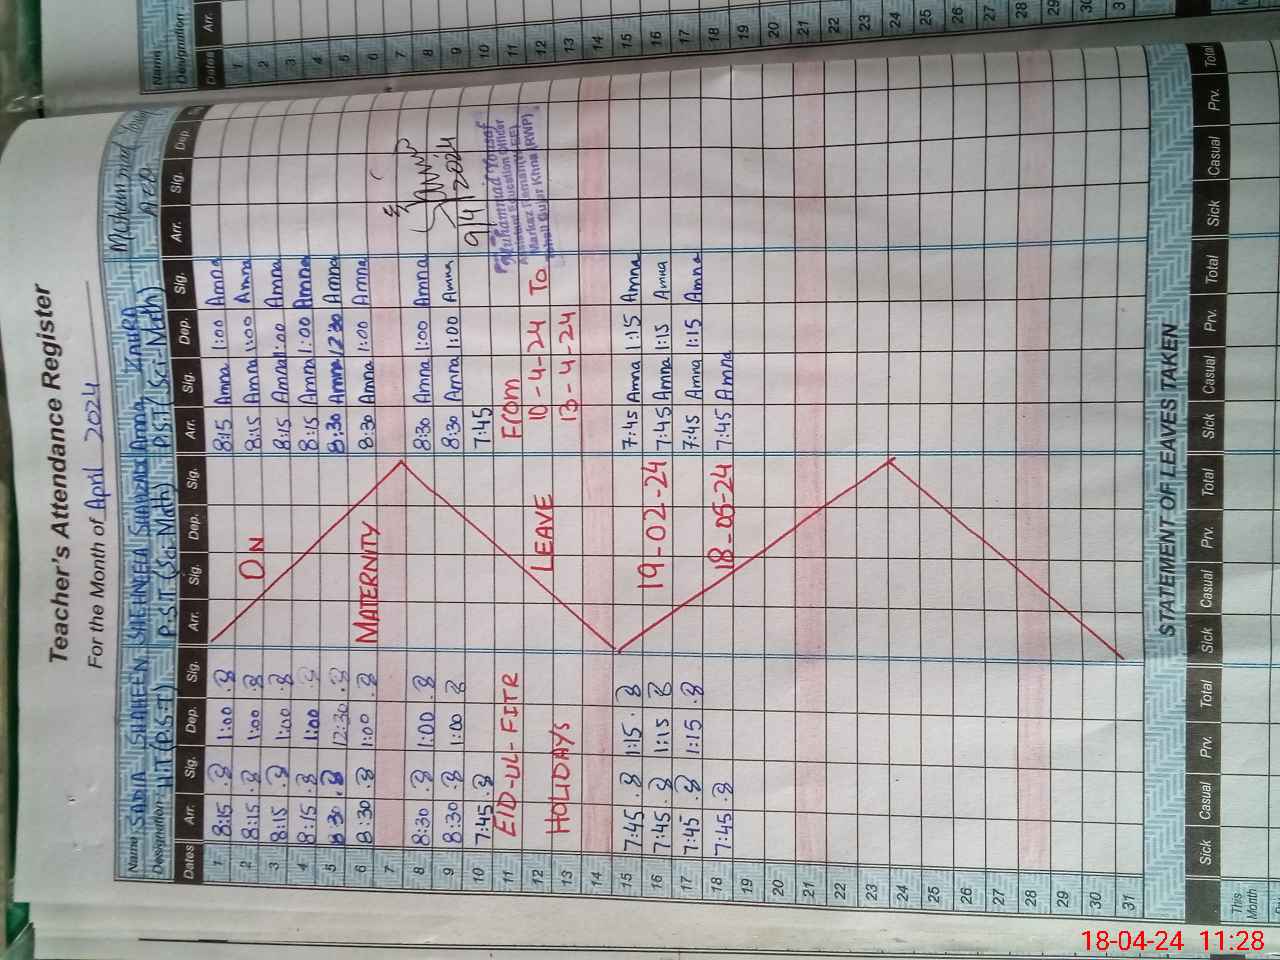 Teacher's Attendance Register
For the Month of April 2024
Name SADIA SHAHEEN SHEHNEA SHAHZADI Amna ZAHRA Mohammad
Designation: H.T (P.S.T) P.S.T (Sci-Math) P.S.T (Sci-Math) AEO
Dates Arr. Sig. Dep. Sig. Arr. Sig. Dep. Sig. Arr. Sig. Dep. Sig. Arr. Sig. Dep.
1 8:15 1:00 8:15 Amna 1:00 Amna
2 8:15 1:00 ON 8:15 Amna 1:00 Amna
3 8:15 1:00 8:15 Amna 1:00 Amna
4 8:15 1:00 8:15 Amna 1:00 Amna
5 8:30 12:30 8:30 Amna 12:30 Amna
6 8:30 1:00 MATERNITY 8:30 Amna 1:00 Amna
7
8 8:30 1:00 8:30 Amna 1:00 Amna
9 8:30 1:00 8:30 Amna 1:00 Amna
10 7:45 7:45 9/4/2024
11 EID-UL-FITR From Muhammad Yousaf
12 LEAVE 10-4-24 To
13 HOLIDAYS 13-4-24
14
15 7:45 1:15 7:45 Amna 1:15 Amna
16 7:45 1:15 19-02-24 7:45 Amna 1:15 Amna
17 7:45 1:15 7:45 Amna 1:15 Amna
18 7:45 18-05-24 7:45 Amna
19
20
21
22
23
24
25
26
27
28
29
30
31
STATEMENT OF LEAVES TAKEN
Sick Casual Prv. Total Sick Casual Prv. Total Sick Casual Prv. Total Sick Casual Prv. Total
This Month
Name
Designation:
Dates Arr.
1
2
3
4
5
6
7
8
9
10
11
12
13
14
15
16
17
18
19
20
21
22
23
24
25
26
27
28
29
30
18-04-24 11:28